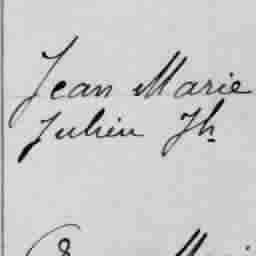 Jean Marie
Julien Jh